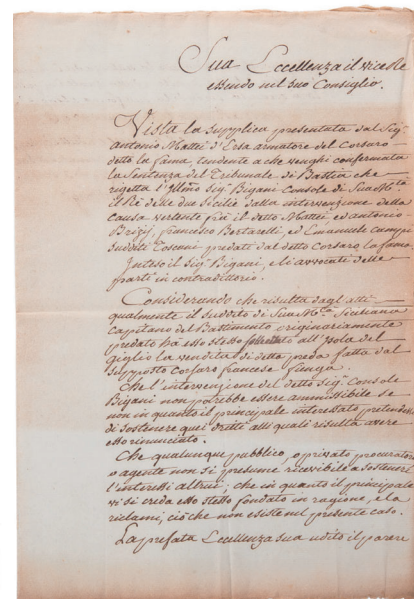 Sua Eccellenza il vice Re
essendo nel suo Consiglio.
Vista la supplica presentata dal Sig.r
antonio Mattei d'Ersa armatore del Corsaro
detto la fama, tendente a che venghi confermata
la Sentenza del Tribunale di Bastia che
rigetta l'Illmo Sig. Bigani Console di Sua M.tà
il Re delle due Sicilie dalla intervenzione della
causa vertente fra il detto Mattei, ed antonio
francesco Bertarelli, ed Emanuele campi
sudditi Toscani predati dal detto Corsaro, la fama.
Inteso il Sig. Bigani, e li avvocati delle
parti in contradittorio.
Considerando che risulta dagl'atti
qualmente il suddito di Sua M.tà Siciliana
Capitano del Bastimento originariamente
predato ha esso stesso all'Isola del
giglio la vendita di detta preda fatta dal
supposto corsaro francese
Che l'intervenzione del detto Sig.r Console
Bigani non potrebbe essere ammissibile se
non in quanto il principale interessato
di sostenere quei dritti alli quali risulta avere
esso rinunciato.
Che qualunque pubblico, o privato procuratore
o agente non si presume recevibile a sostenere
l'interessi altrui; che in quanto il principale
vi si creda esso stesso fondato in ragione, e la
riclami, ciò che non esiste nel presente caso.
La prefata Eccellenza sua udito il parere